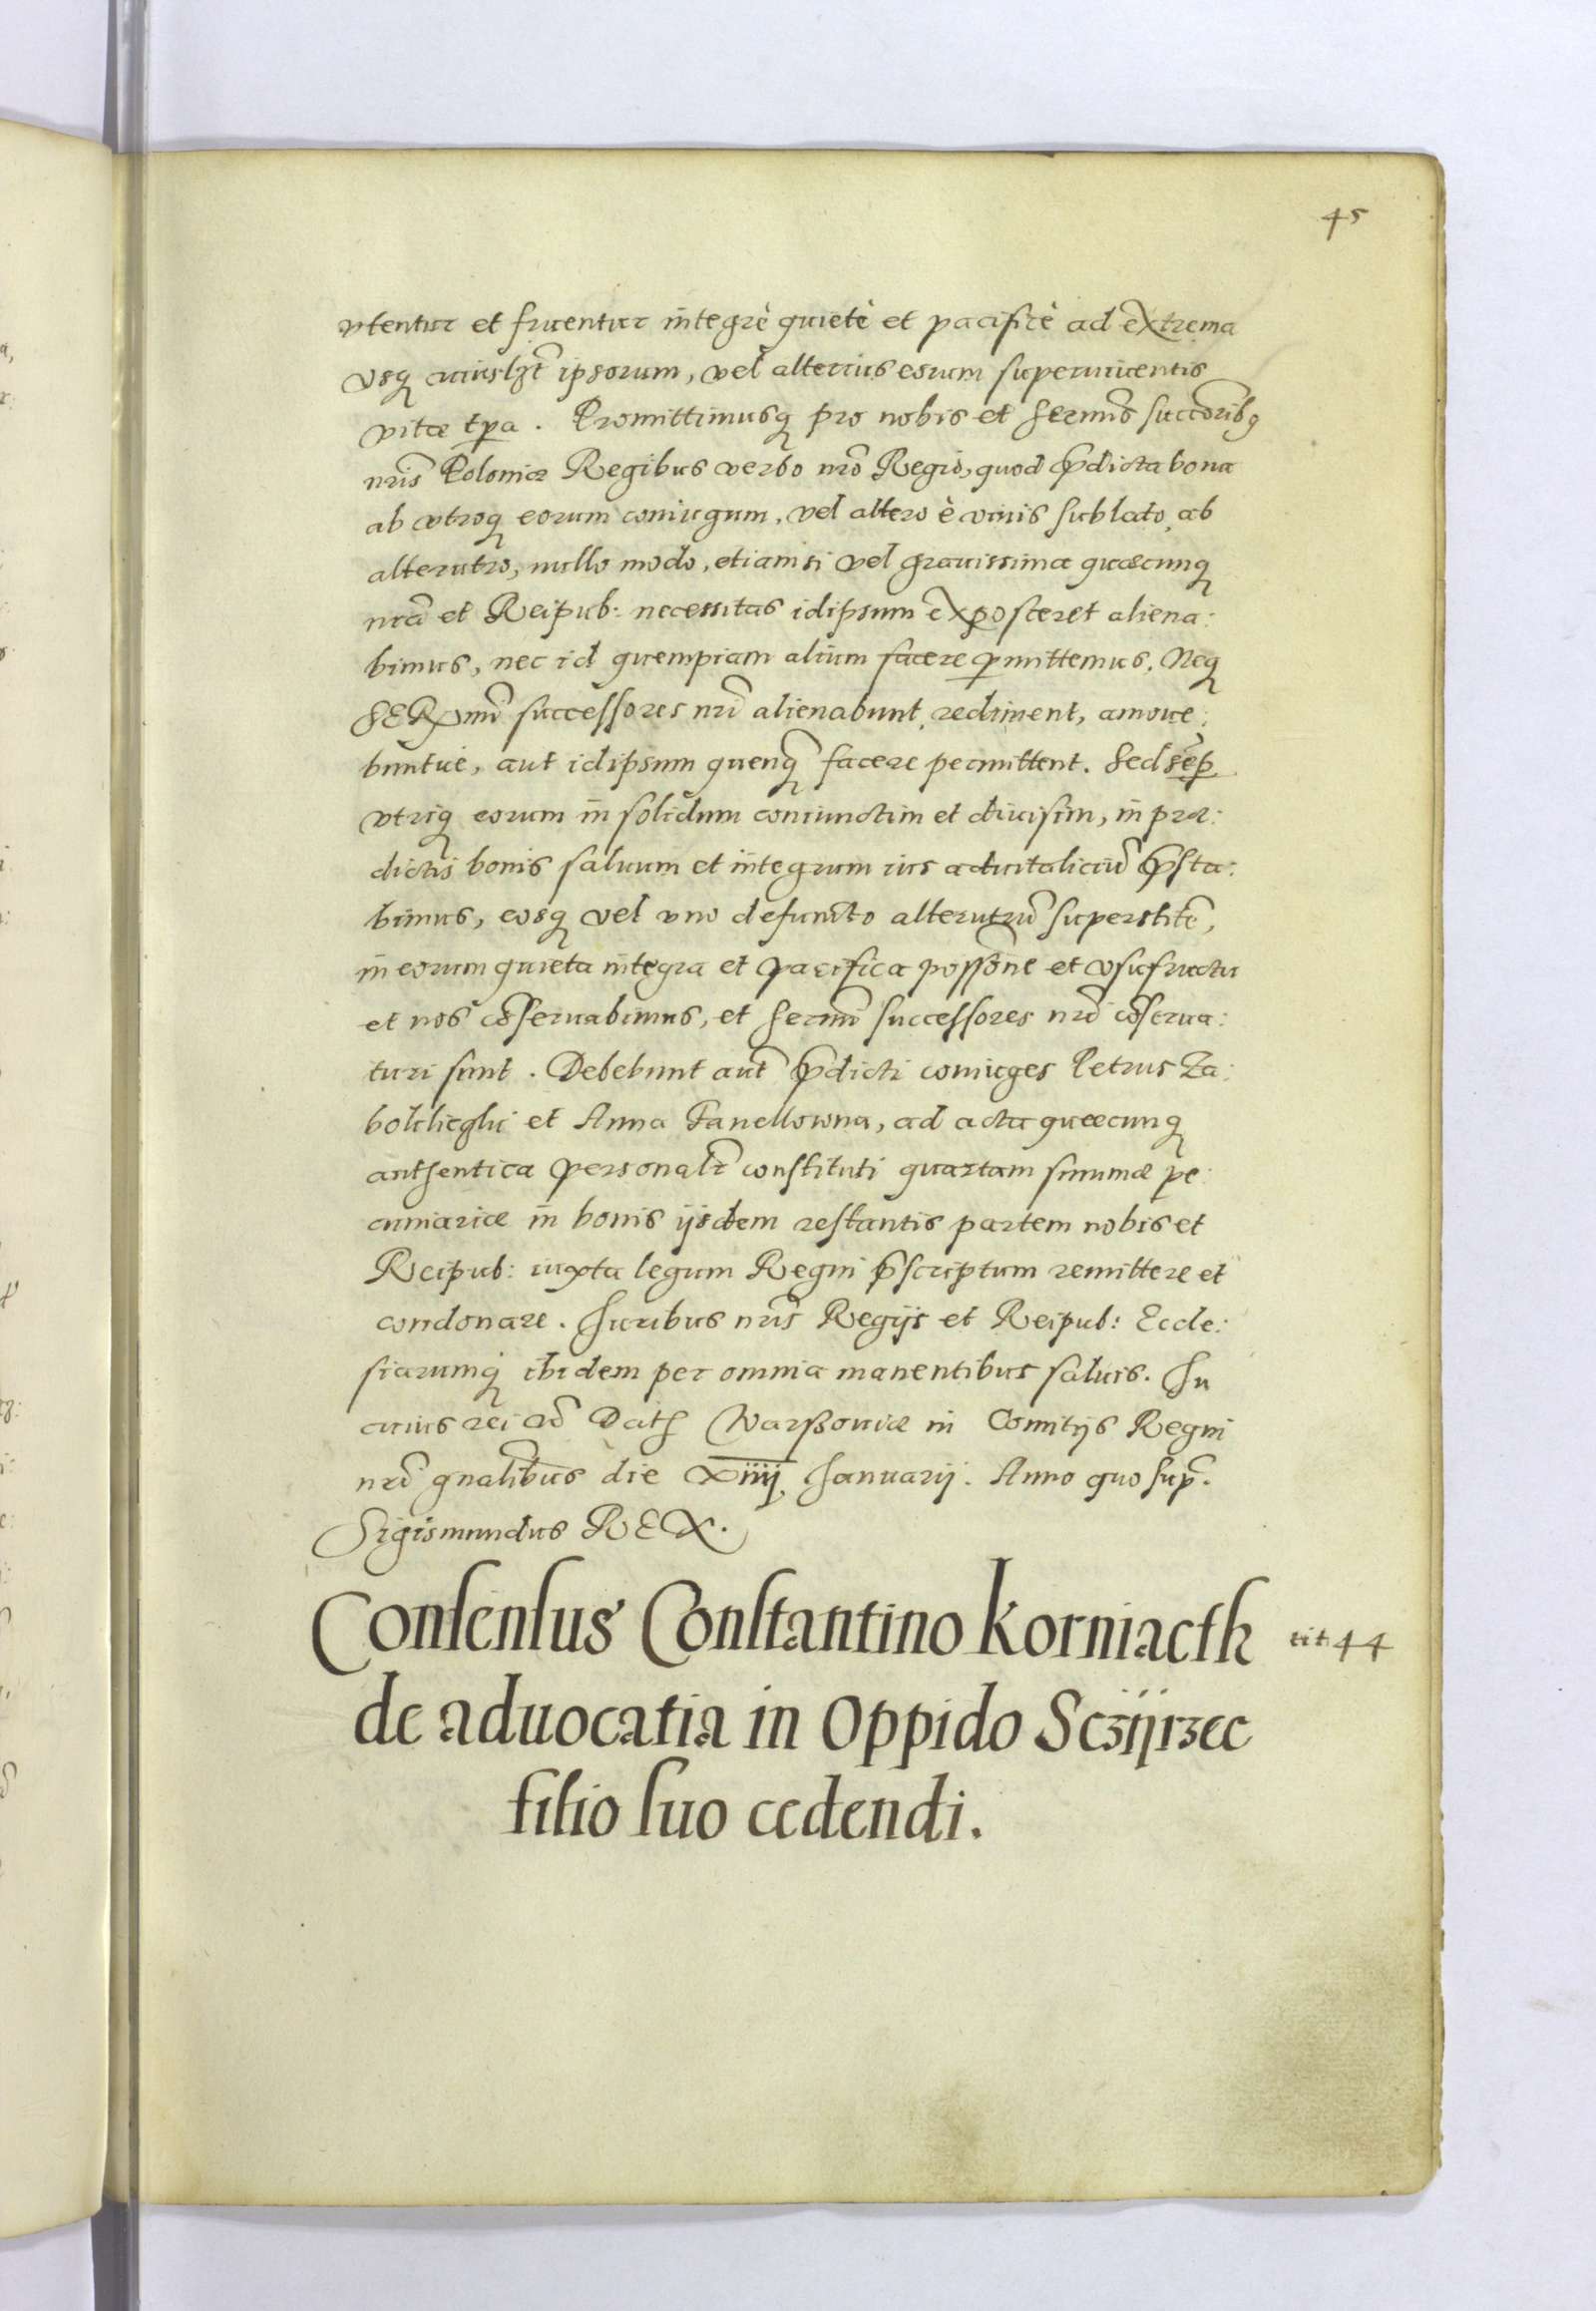 45
vtentur et fruentur integrè quietè et pacificè ad extrema
vsq cuiuslzt ipsorum, vel alterius eorum superuiuentis
vitæ tpa. Promittimusq pro nobis et Sermis successoribq
nris Poloniæ Regibus verbo nro Regio, quod pdicta bona
ab vtroq eorum coniugum, vel altero è viuis sublato, ab
alterutro, nullo modo, etiamsi vel grauissima quæcunq
nra et Reipub: necessitas idipsum exposceret aliena:
bimus, nec id quempiam alium facere pmittemus. Neq
SERmi successores nri alienabunt, rediment, amoue:
buntue, aut idipsum quenq facere permittent. Sed semp
vtriq eorum in solidum coniunctim et diuisim, in præ:
dictis bonis saluum et integrum ius aduitaliciu psta:
bimus, eosq vel vno defuncto alterutru superstite,
in eorum quieta integra et pacifica possone et vsufructu
et nos coseruabimus, et Sermi successores nri coserua:
turi sunt. Debebunt aut pdicti coniuges Petrus Za:
bolcliczki et Anna Fanellowna, ad acta quæcunq
authentica personalr constituti quartam summæ pe:
cuniariæ in bonis ijsdem restantis partem nobis et
Reipub: iuxta legum Regni pscriptum remittere et
condonare. Iuribus nris Regijs et Reipub: Eccle:
siarumq ibidem per omnia manentibus saluis. In
cuius rei &c Dat Warßouiæ in Comitijs Regni
nri gnalibus die xiiij Ianuarij. Anno quo sup.
Sigismundus REX.
Consensus Constantino Korniackh tit: 44
de aduocatia in Oppido Sczÿrzec
filio suo cedendi.